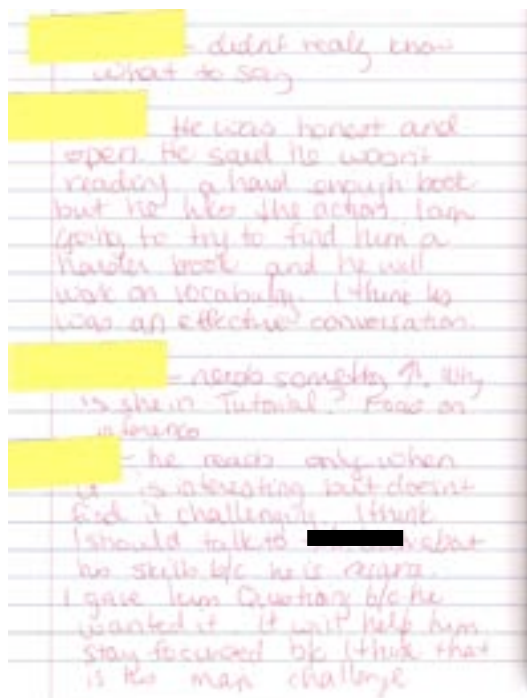 - didn't realy know
what to say
He was honest and
open. He said he wasn't
reading a hard enough book
but he likes the action. I am
going to try to find him a
harder book and he will
work on vocabulary. I think his
was an effective conversation.
- needs something ↑. Why
is she in Tutorial? Focus on
inference
- he reads only when
it is interesting but doesn't
find it challenging. I think
I should talk to about
his skills b/c he is
I gave him b/c he
wanted it. It will help him
stay focused b/c I think that
is his main challenge